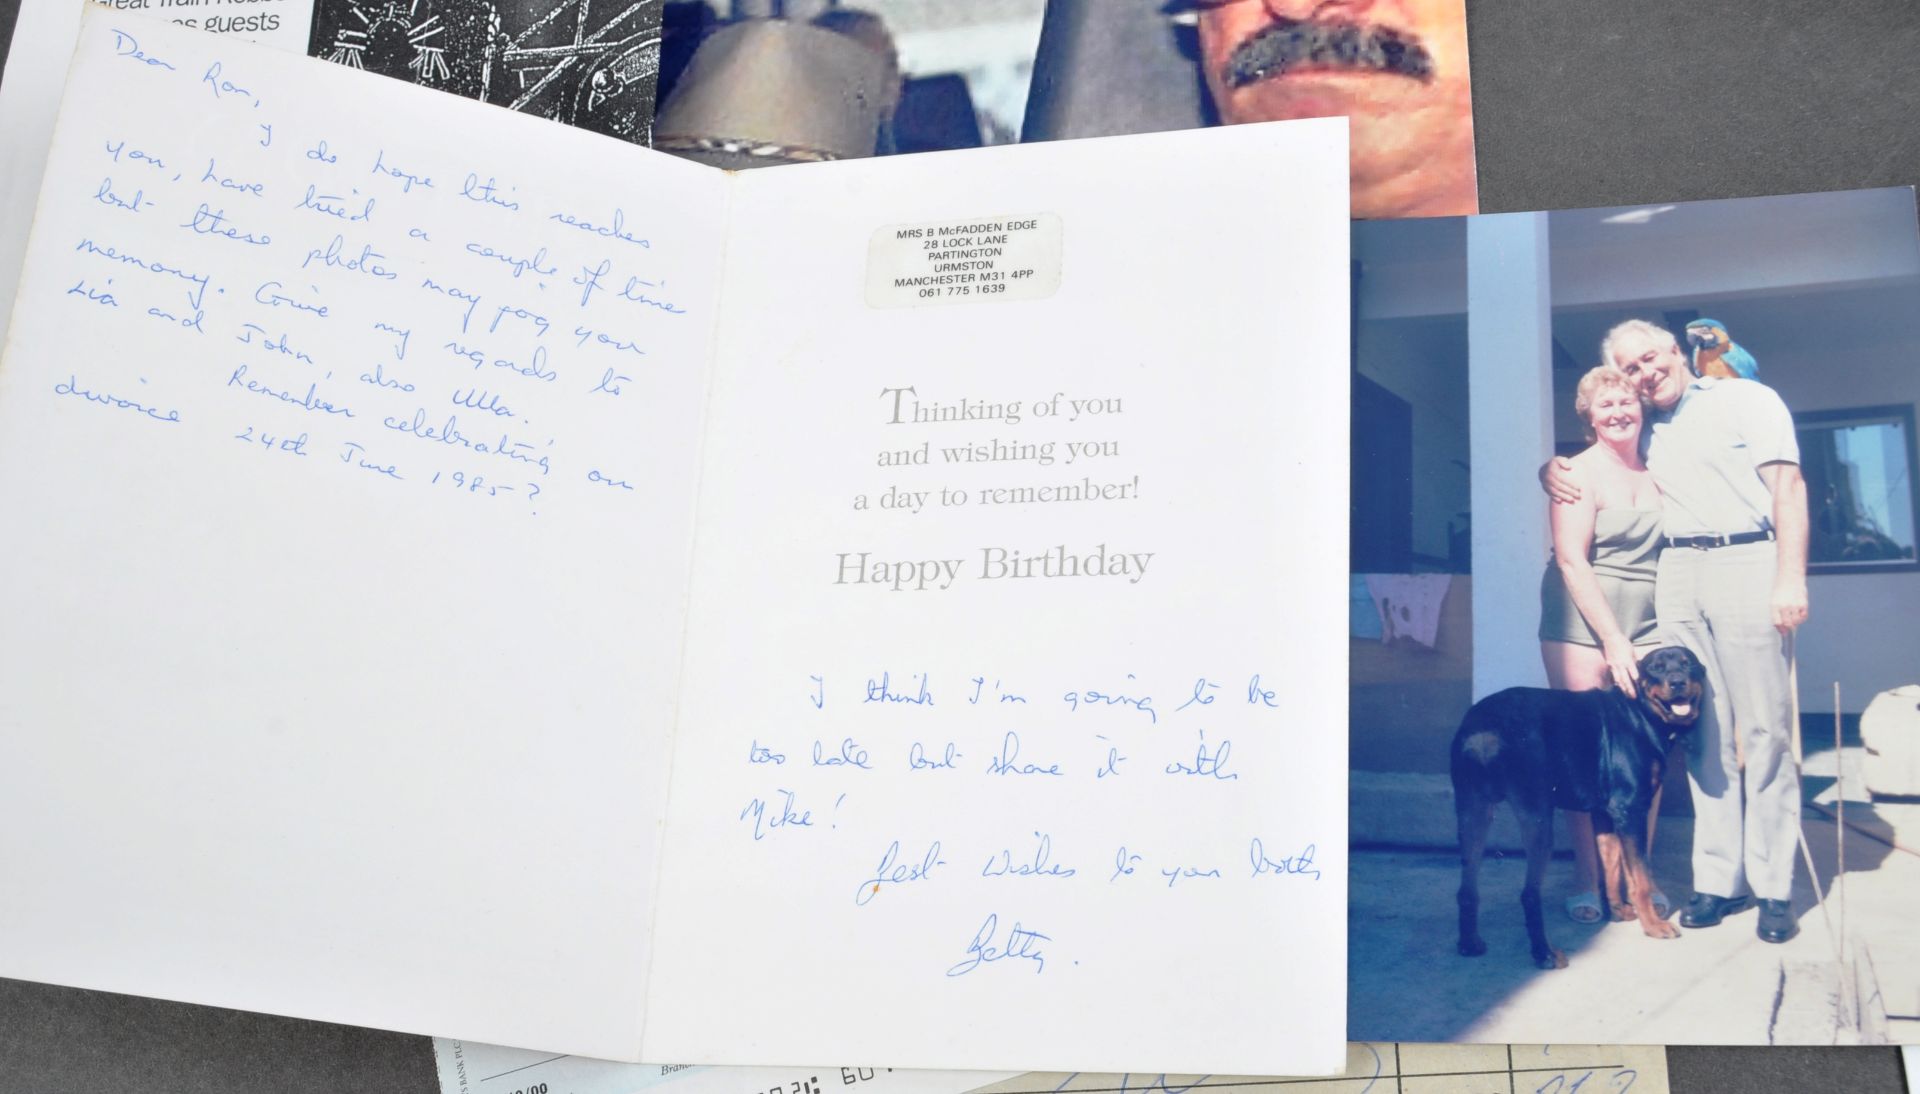 Great Train Robbe
es guests
Dear Ron,
I do hope this reaches
you, have tried a couple of time
but these photos may jog your
memory. Give my regards to
Lia and John, also Ulla.
Remember celebrating our
divorce 24th June 1985?
MRS B McFADDEN EDGE
28 LOCK LANE
PARTINGTON
URMSTON
MANCHESTER M31 4PP
061 775 1639
Thinking of you
and wishing you
a day to remember!
Happy Birthday
I think I'm going to be
too late but share it with
Mike!
Best Wishes to you both
Betty.
S BANK PLC
Branc
/00